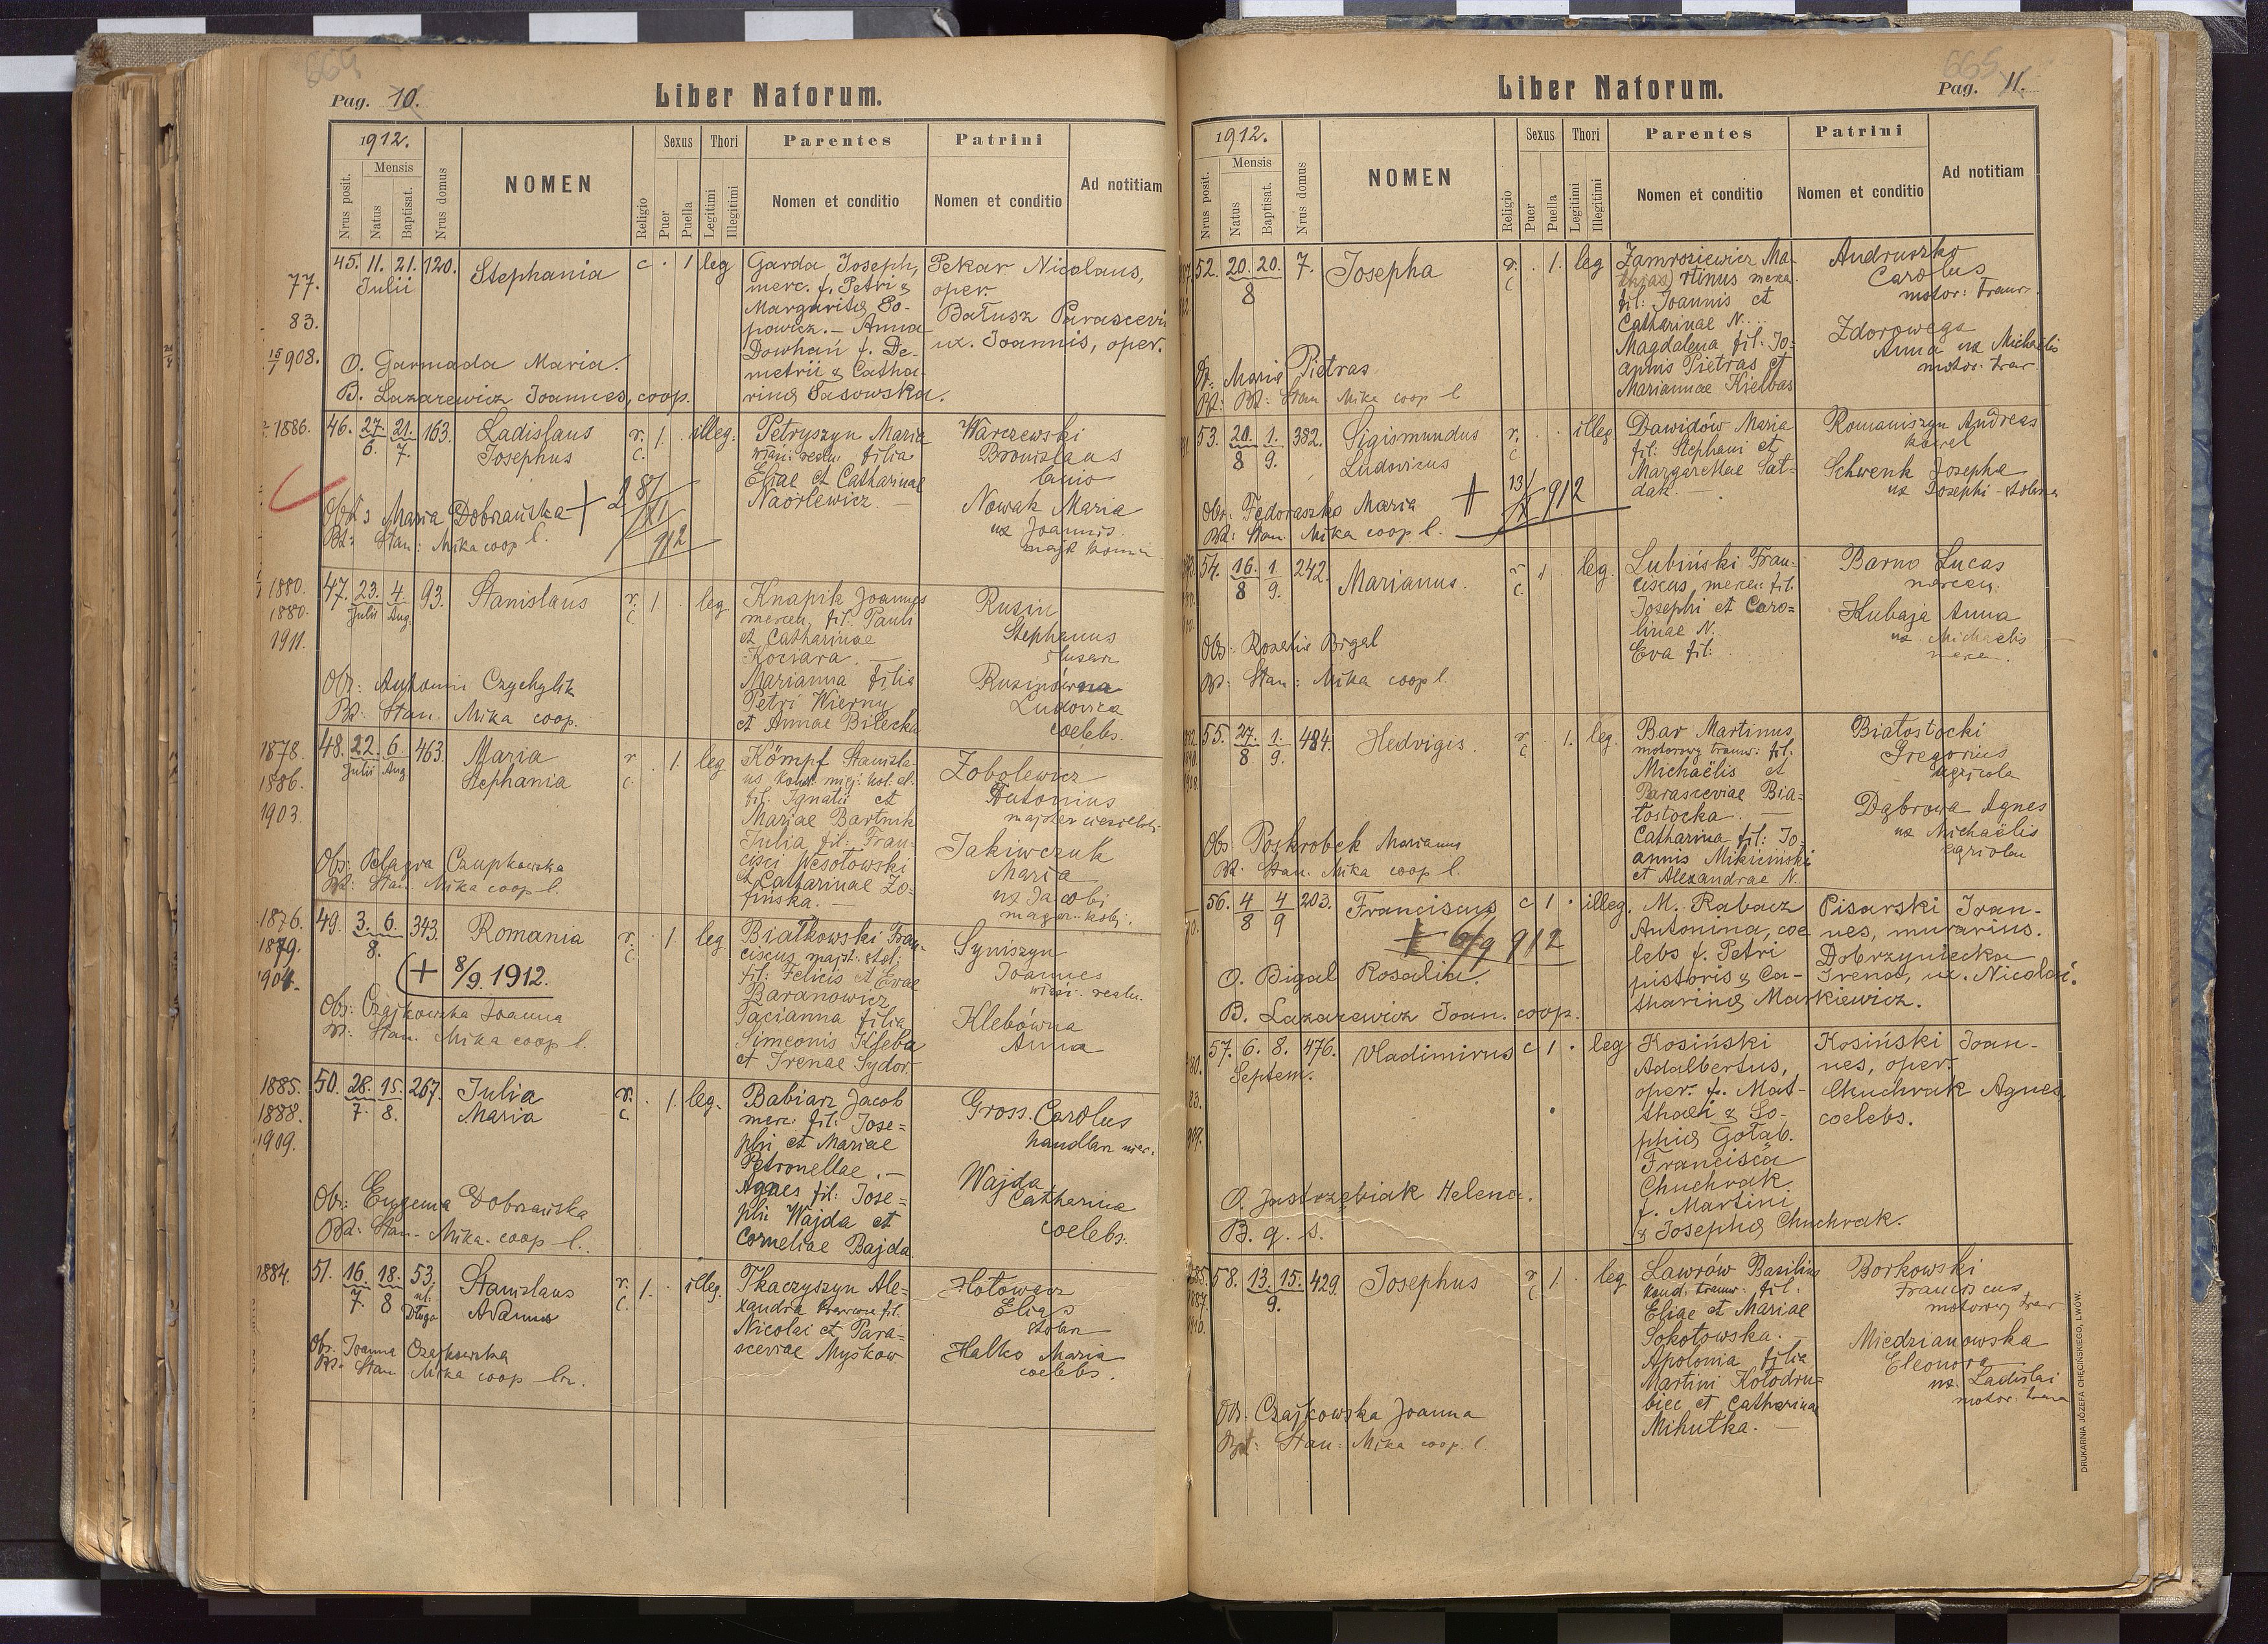 664
Pag. 10.
Liber Natorum.
1912.
Nrus posit.
Mensis
Natus
Baptisat.
Nrus domus
NOMEN
Religio
Sexus
Puer
Puella
Thori
Legitimi
Illegitimi
Parentes
Nomen et conditio
Patrini
Nomen et conditio
Ad notitiam
77.
83.
15/1 908.
45. 11. 21. 120. Stephania c. 1 leg
Julii
Garda Joseph,
merc. f. Petri &
Margaritæ So-
powicz. — Anna
Dowhań f. De-
metrii & Catha-
rinæ Sasowska.
Pekar Nicolaus,
oper.
Batusz Parascevia
ux. Joannis, oper.
O. Garmada Maria.
B. Lazarewicz Joannes, coop.
1886.
46. 27. 21. 163. Ladislaus r. 1. illeg.
6. 7. Josephus c.
Petryszyn Maria
filia
Eliae et Catharinae
Naorlewicz.
Warczewski
Bronislaus
lanio
Nowak Maria
ux Joannis
Obst: Maria Dobrzańska + 28/XI 912
Bt: Stan: Mika coop l.
1880.
1880.
1911.
47. 23. 4. 93. Stanislaus r. 1. leg.
Julii Aug. c.
Knapik Joannes
mercen, fil: Pauli
et Catharinae
Kociara. —
Marianna filia
Petri Wierny
et Annae Bilecka
Rusin
Stephanus
slusarz
Rusinówna
Ludovica
coelebs.
Obs: Antonia Czychylik
Bt: Stan. Mika coop.
1878.
1886.
1903.
48. 22. 6. 463. Maria r. 1. leg
Julii Aug Stephania c.
Kömpf Stanisla-
us,
fil: Ignatii et
Mariae Bartnik
Julia fil: Fran-
cisci Wesołowski
et Catharinae Zo-
fińska. —
Zobolewicz
Antonius
Jakiwczuk
Maria
ux Jacobi
Obs: Pelagia Czupkowska
Bt: Stan. Mika coop l.
1876.
1879.
1904.
49. 3. 6. 343. Romania r. 1. leg.
8. c.
(+ 8/9. 1912.
Białkowski Fran-
ciscus majst. stol.
fil: Felicis et Evae
Baranowicz
Tacianna filia
Simeonis Kleba
et Irenae Sydor.
Syniszyn
Joannes
Klebówna
Anna
Obs: Czajkowska Joanna
Bt: Stan. Mika coop l.
1885.
1888.
1909.
50. 28. 15. 267. Julia r. 1. leg.
7. 8. Maria c.
Babiarz Jacob
merc. fil: Jose=
phi et Mariae
Petronellae. —
Agnes fil: Jose=
phi Wajda et
Corneliae Bajda
Gross. Carolus
Wajda
Catharina
coelebs.
Obs: Eugenia Dobrzańska
Bt: Stan. Mika. coop l.
1884.
51. 16. 18. 53, Stanislaus r. 1. illeg.
7. 8 ul. Długa Adamus c.
Tkaczyszyn Ale=
xandra krawcowa fil.
Nicolai et Para=
sceviae Myśkow
Hołowacz
Elias
stolarz
Halko Maria
coelebs.
Obs: Joanna Czajkowska
Bt: Stan Mika coop
665
Pag. 11.
Liber Natorum.
1912.
Nrus posit.
Mensis
Natus
Baptisat.
Nrus domus
NOMEN
Religio
Sexus
Puer
Puella
Thori
Legitimi
Illegitimi
Parentes
Nomen et conditio
Patrini
Nomen et conditio
Ad notitiam
52. 20. 20. 7. Josepha r. 1. leg
8 c
Zamroziewicz Ma-
rtinus
fil: Joannis et
Catharinae N.
Magdalena fil: Jo=
annis Pietras et
Mariannae Kiełbas
Andruszko
Carolus
motor: tramw.
Zdorowega
Anna ux Michaëlis
motor. tram
Obs: Maria Pietras
Bt: Stan Mika coop l
53. 20. 1. 382. Sigismundus r. illeg.
8 9. Ludovicus c
Dawidów Maria
fil: Stephani et
Margarethae Sat-
dak. —
Romaniszyn Andreas
Schwenk Josepha
ux Josephi
Obs: Fedoraszko Maria + 13/X 912
Bt: Stan. Mika coop l.
54. 16. 1. 242. Marianus. r. 1 leg.
8 9. c.
Lubiński Fran-
ciscus, mercen. fil.
Josephi et Caro=
linae N.
Eva fil:
Barno Lucas
mercen.
Kubaja Anna
ux Michaelis
mercen.
Obs: Rosalia Bigal
Bt: Stan: Mika coop l.
55. 27. 1. 484. Hedvigis. r. 1. leg.
8 9. c
Bar Martinus
motorowy tramw: fil.
Michaëlis et
Parasceviae Bia=
łostocka. —
Catharina fil: Jo=
annis Mikiciński
et Alexandrae N.
Białostocki
Gregorius
agricola
Dąbrowa Agnes
ux Michaëlis
agricolae
Obs: Poskrobek Marianna
Bt: Stan. Mika coop l.
56. 4 4 203. Franciscus c 1 . illeg.
8 9
+ 6/9 912
M. Rabacz
Antonina, coe
lebs f. Petri
pistoris & Ca-
tharinæ Markiewicz.
Pisarski Ioan-
nes, murarius.
Dobrzyniecka
Irena, ux. Nicolai.
O. Bigal Rosalia.
B. Lazarewicz Joan. coop.
57. 6. 8. 476. Vladimirus c 1 . leg
Septem.
Kosiński
Adalbertus,
oper. f. Mat-
thaei & So-
phiæ Gołąb.
Francisca
Chuchrak
f. Martini
& Josephæ Chuchrak.
Kosiński Ioan-
nes, oper.
Chuchrak Agnes,
coelebs.
O. Jastrzębiak Helena.
B. q. s.
58. 13. 15. 429. Josephus r 1. leg
9. c
Lawrów Basilius
kond. tramw. fil.
Eliae et Mariae
Sokołowska. —
Apolonia filia
Martini Kołodru=
biec et Catharinae
Mihutka. —
Borkowski
Franciscus
motorowy tram
Miedzianowska
Eleonora
ux. Ladislai
motor. tram
Obs. Czajkowska Joanna
Bpt: Stan: Mika coop. l.
DRUKARNIA JÓZEFA CHĘCIŃSKIEGO, LWÓW.